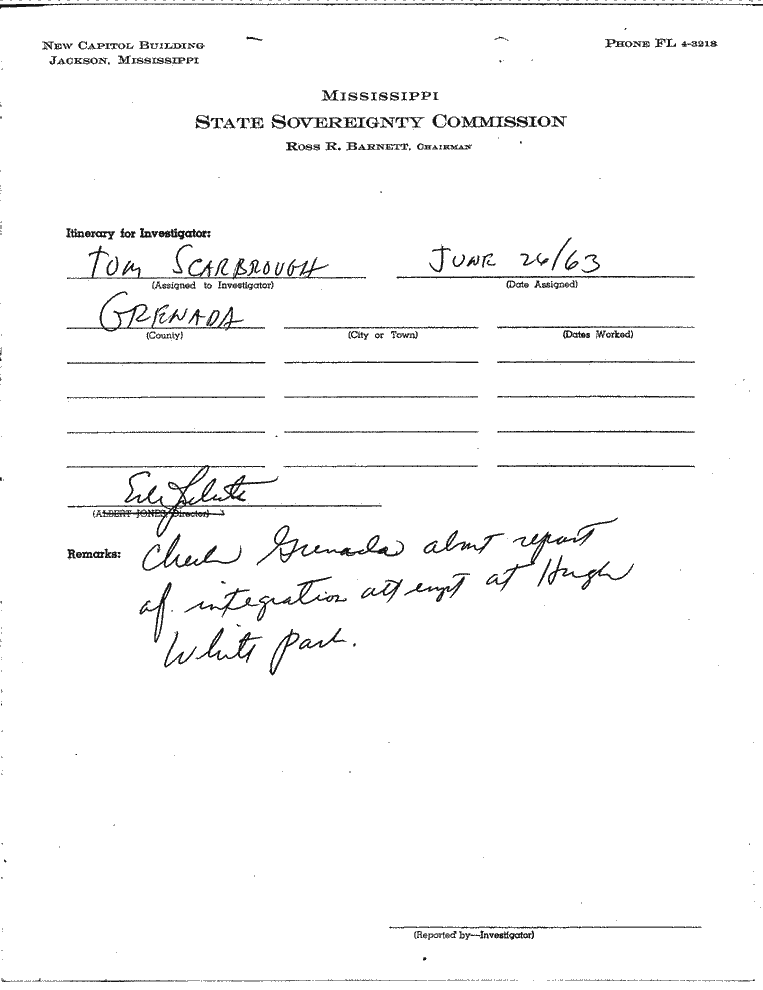 NEW CAPITOL BUILDING
JACKSON, MISSISSIPPI
PHONE FL 4-3218
MISSISSIPPI
STATE SOVEREIGNTY COMMISSION
ROSS R. BARNETT, CHAIRMAN
Itinerary for Investigator:
TOM SCARBROUGH JUNE 26/63
(Assigned to Investigator) (Date Assigned)
GRENADA
(County) (City or Town) (Dates Worked)
(ALBERT JONES, Director)
Remarks: Check Grenada about report
of integration attempt at Hugh
White Park.
(Reported by—Investigator)